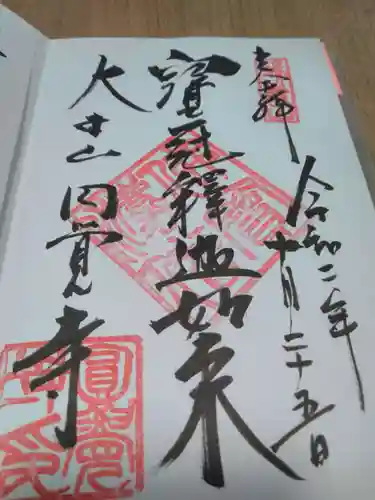 奉拝
令和二年
十月二十五日
寳冠釋迦如来
大本山円覚寺